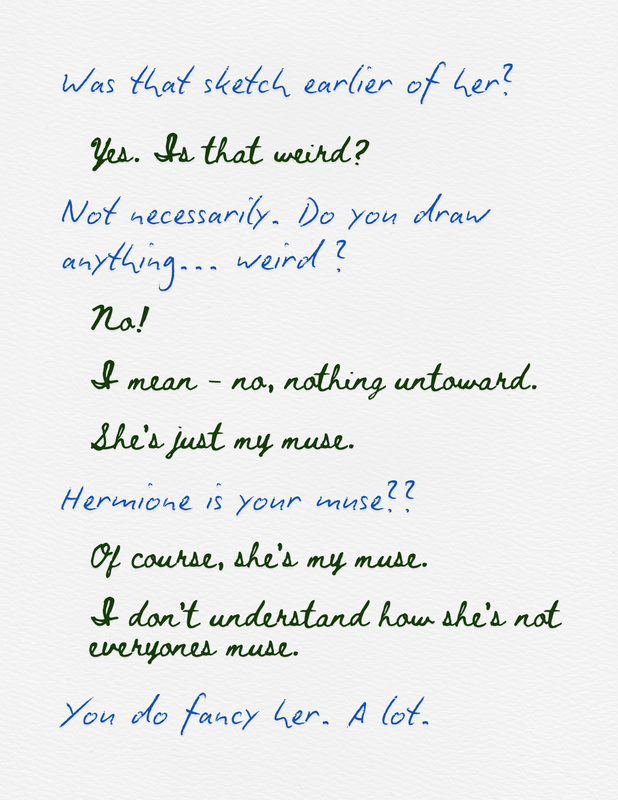 Was that sketch earlier of her?
Yes. Is that weird?
Not necessarily. Do you draw
anything... weird?
No!
I mean - no, nothing untoward.
She's just my muse.
Hermione is your muse??
Of course, she's my muse.
I don't understand how she's not
everyones muse.
You do fancy her. A lot.